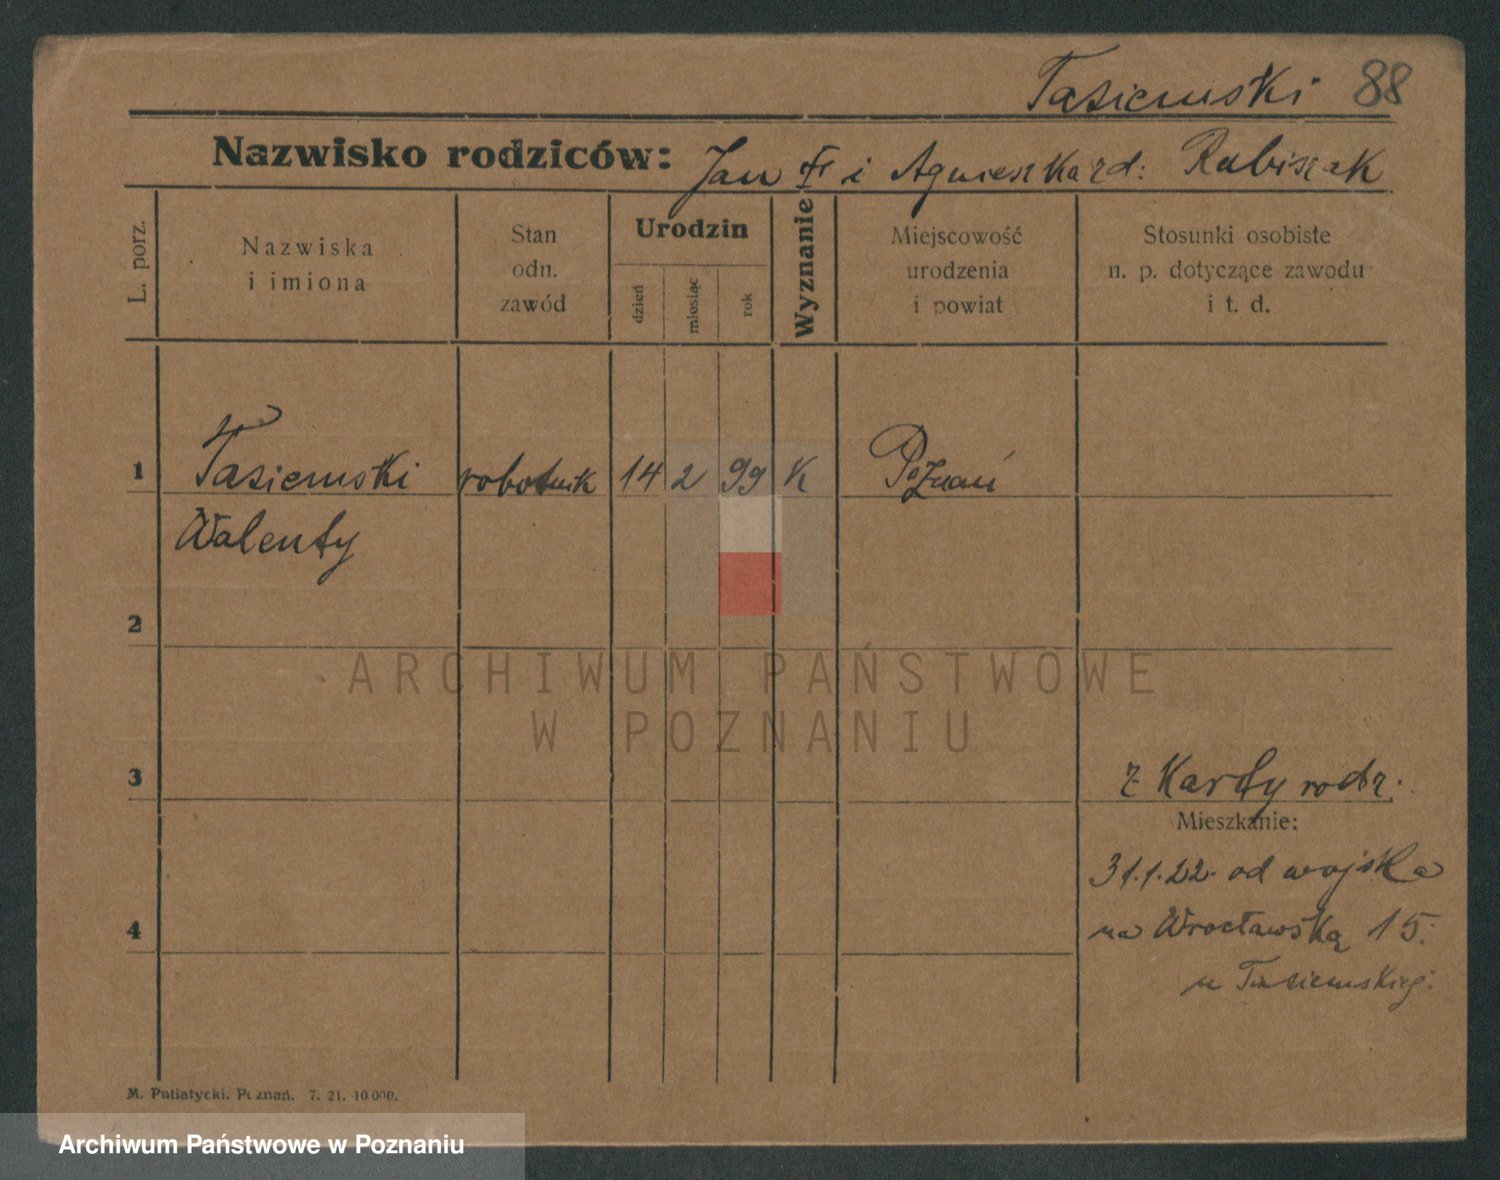 Tasiemski 88
Nazwisko rodziców: Jan i Agnieszka zd: Rabiszak
L. porz.
Nazwiska
i imiona
Stan
odn.
zawód
Urodzin
dzień
miesiąc
rok
Wyznanie
Miejscowość
urodzenia
i powiat
Stosunki osobiste
n. p. dotyczące zawodu
i t. d.
1 Tasiemski robotnik 14 2 99 K Poznań
Walenty
2
ARCHIWUM PAŃSTWOWE
W POZNANIU
3 z Karty rodz.
Mieszkanie:
31.1.22. od wojska
4 na Wrocławską 15.
u Tasiemskiej.
M. Putiatycki. Poznań. 7. 21. 10 000.
Archiwum Państwowe w Poznaniu